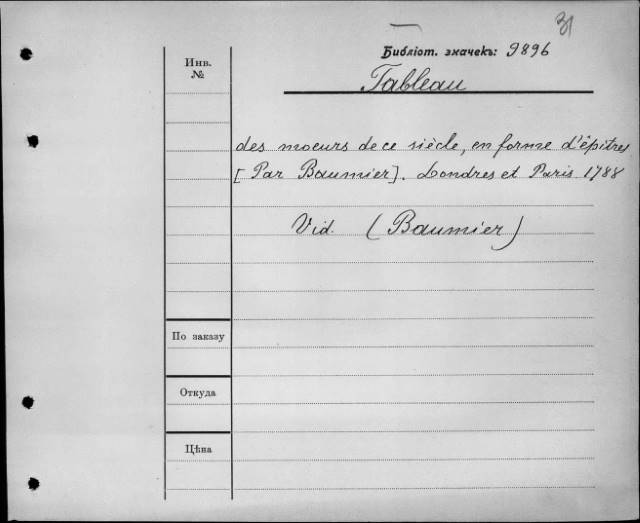 31
Библіот. значекъ: 9896
Инв.
№
Tableau
des moeurs de ce siècle, en forme d'épitres
[Par Baumier]. Londres et Paris 1788
Vid. (Baumier)
По заказу
Откуда
Цѣна